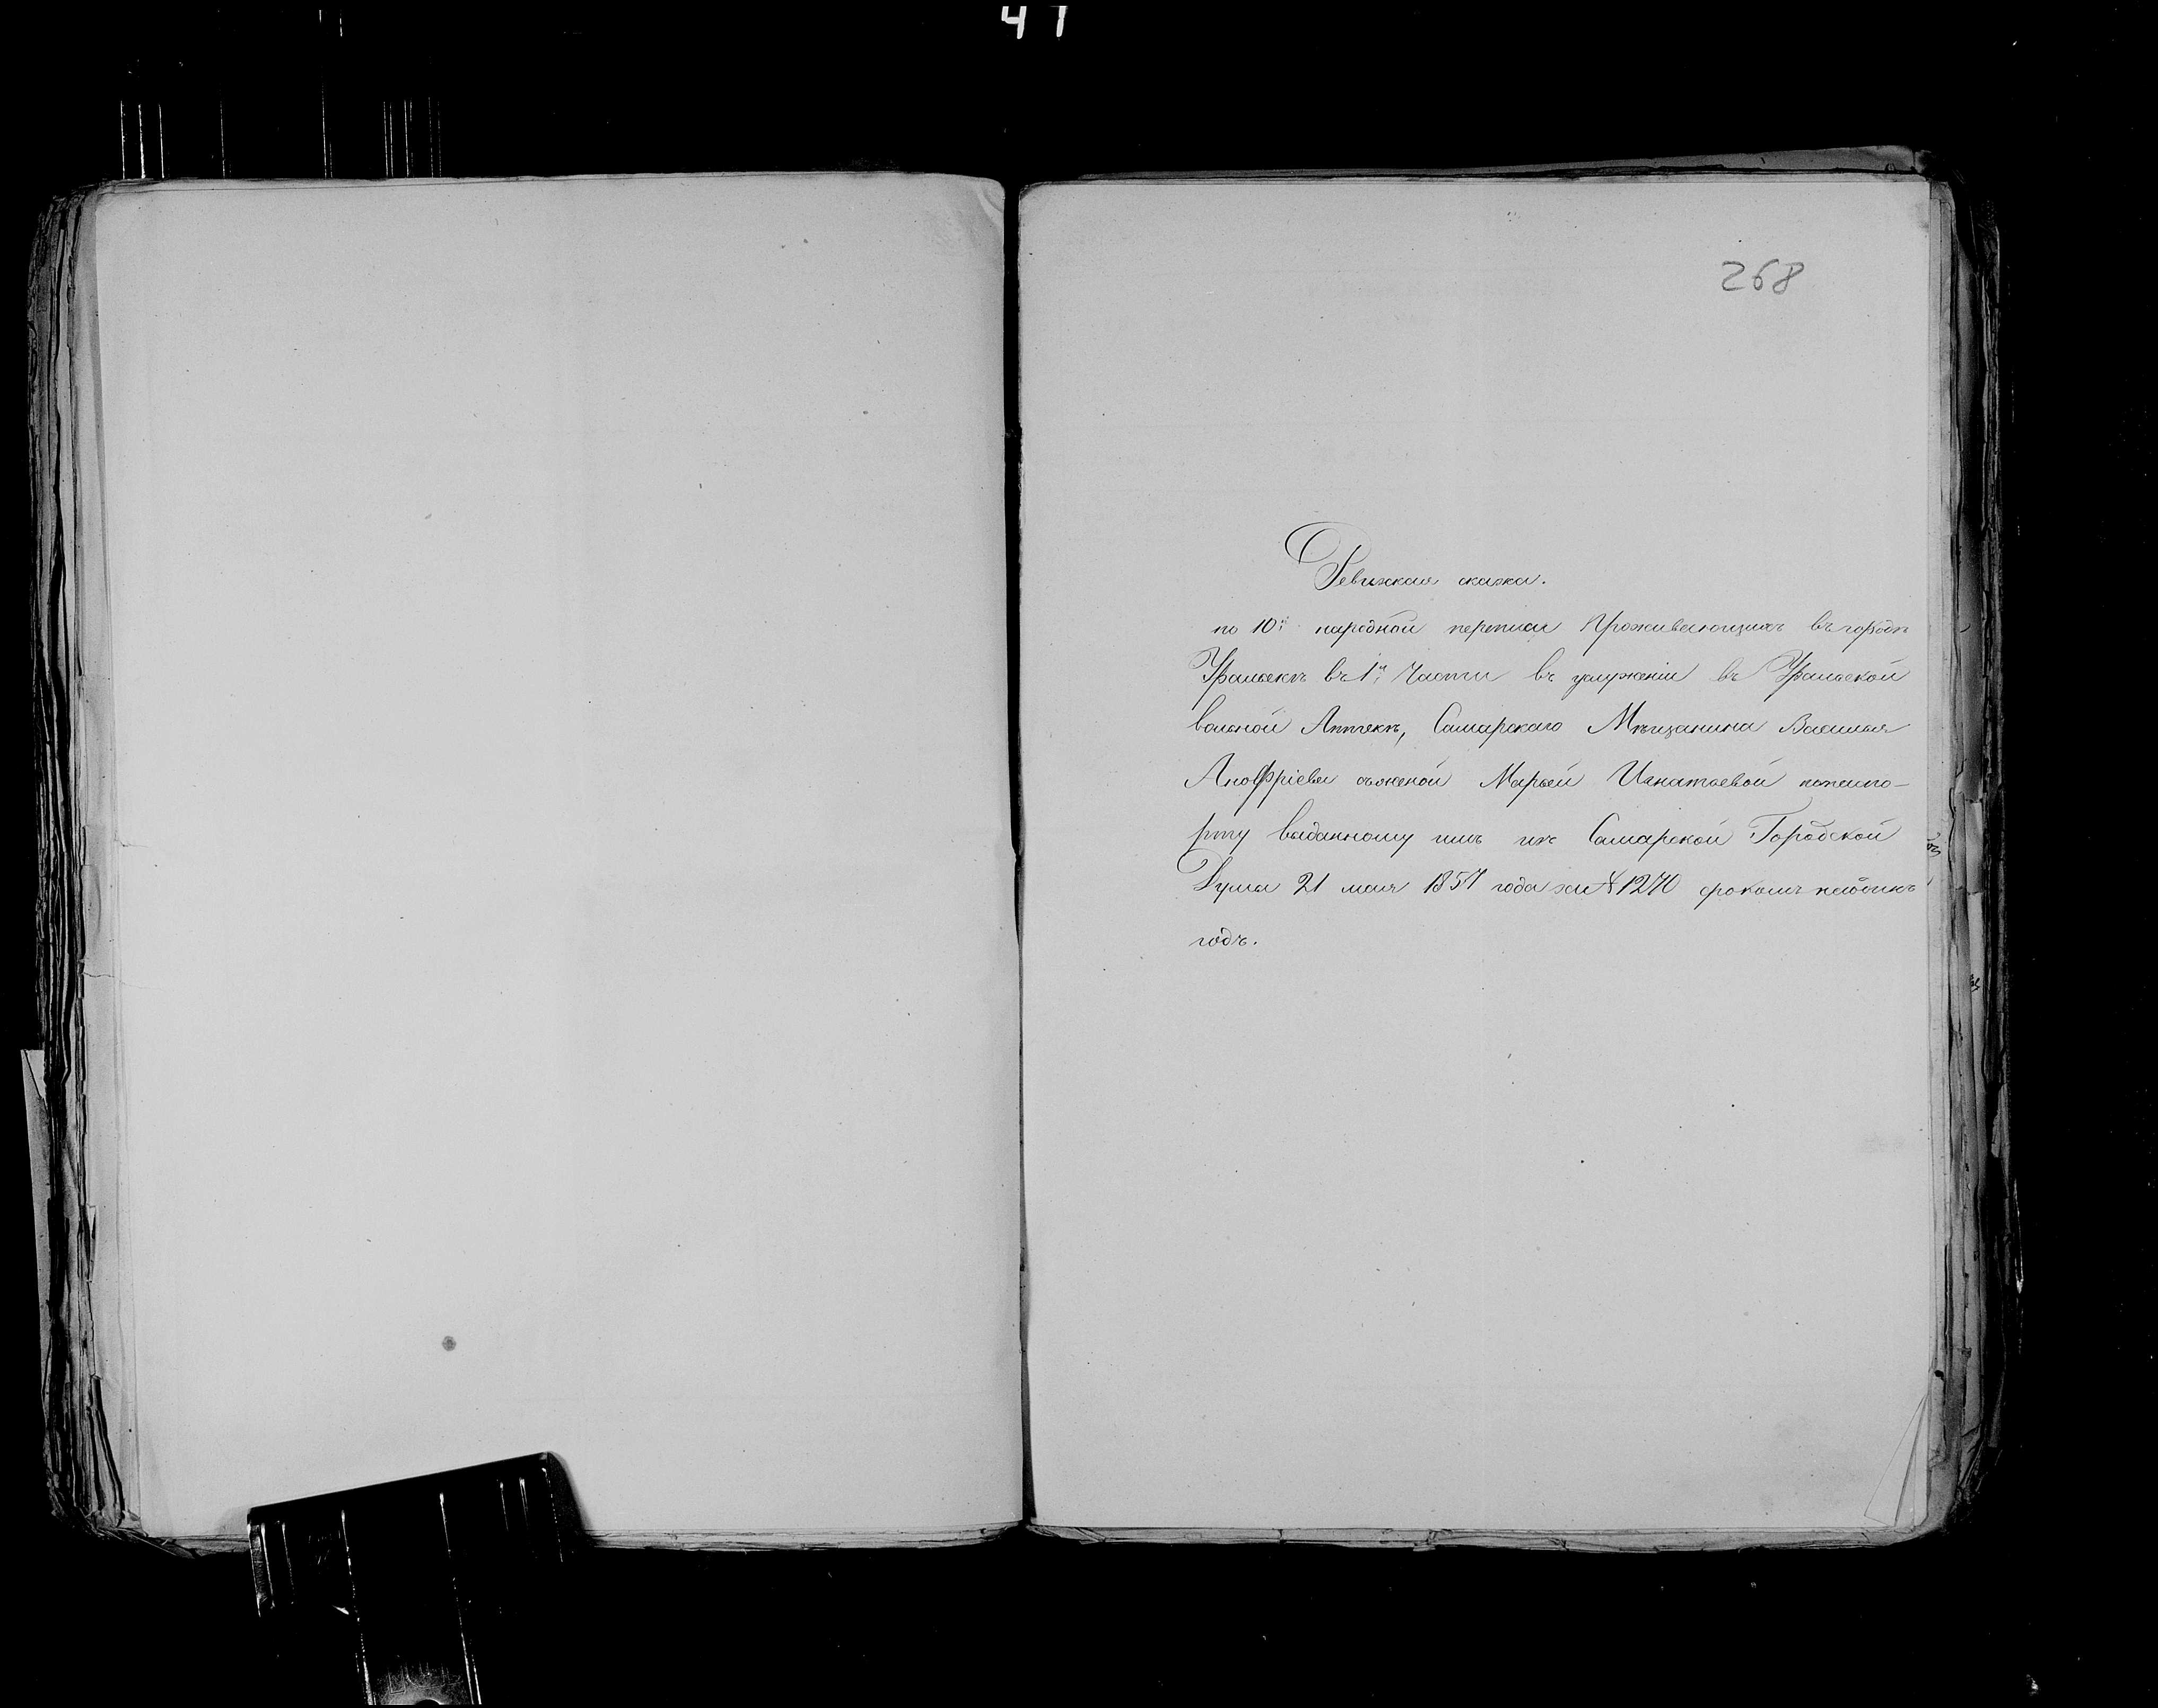 41
268
Ревизская сказка.
по 10й народной переписи Проживающихъ въ городѣ
Уральскѣ въ 1й Части въ услуженіи въ Уральской
вольной Аптекѣ, Самарскаго Мѣщанина Василья
Анофріева съ женой Марьей Игнатьевой попаспо-
рту выданному имъ изъ Самарской Городской
Думы 21 мая 1857 года за № 1270 срокомъ наодинъ
годъ.